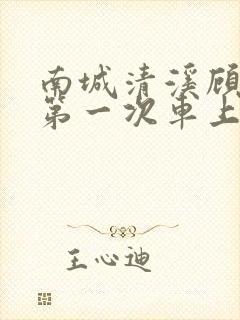 南城清溪顾
第一次车上
王心迪